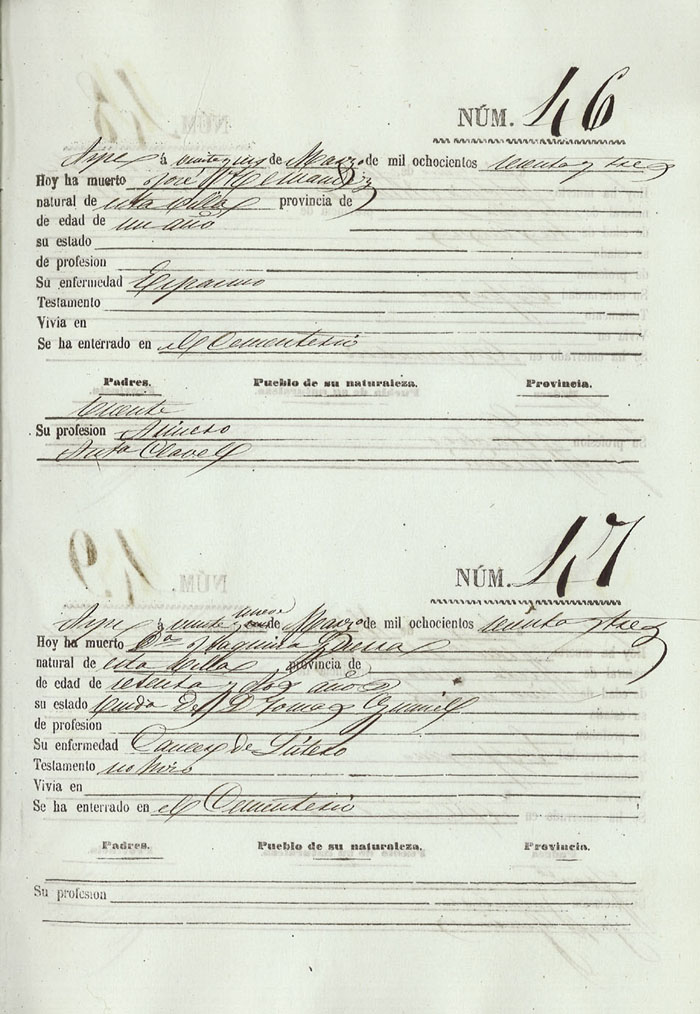 NÚM. 46
Aspe á veinte y seis de Marzo de mil ochocientos setenta y tres
Hoy ha muerto José Hernandez
natural de esta villa provincia de
de edad de un año
su estado
de profesion
Su enfermedad Espasmo
Testamento
Vivia en
Se ha enterrado en el Cementerio
Padres. Pueblo de su naturaleza. Provincia.
Vicente
Su profesion
Anta Clavel
NÚM. 47
Aspe á veinte nueve de Marzo de mil ochocientos setenta y tres
Hoy ha muerto Dª Joaquina
natural de esta villa provincia de
de edad de setenta y dos años
su estado Viuda de D Tomas
de profesion
Su enfermedad Cancer de Utero
Testamento no hizo
Vivia en
Se ha enterrado en el Cementerio
Padres. Pueblo de su naturaleza. Provincia.
Su profesion